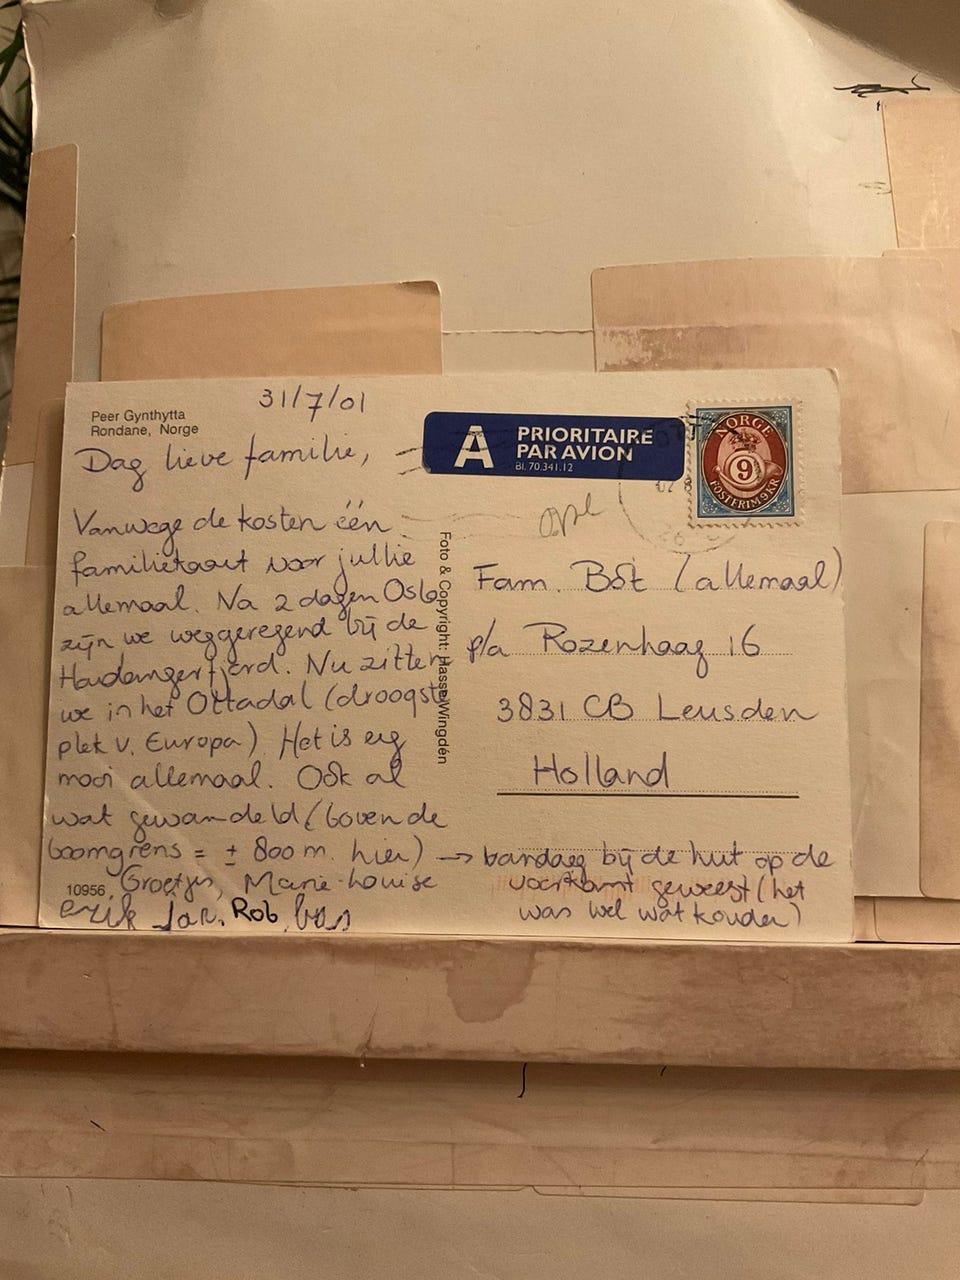 31/7/01
Peer Gynthytta
Rondane, Norge
Dag lieve familie,
Vanwege de kosten één
familiekaart voor jullie
allemaal. Na 2 dagen Oslo
zijn we weggeregend bij de
Hardangerfjord. Nu zitten
we in het Ottadal (droogste
plek v. Europa). Het is erg
mooi allemaal. Ook al
wat gewandeld (boven de
boomgrens = ± 800 m. hier) →
Groetjes, Marie-Louise
10956
Erik Jan, Rob, bas
Foto & Copyright: Hasse Wingdén
A PRIORITAIRE
PAR AVION
Bl. 70.341.12
NORGE
9
POSTFRIM 9KR
Fam. Bót (allemaal)
p/a Rozenhaag 16
3831 CB Leusden
Holland
→ vandaag bij de hut op de
voorkant geweest (het
was wel wat kouder)